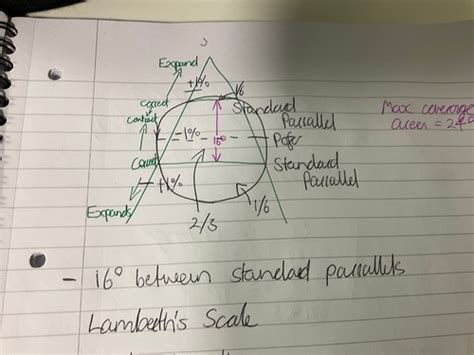 Expand
+1%
1/6
Correct
Standard
Parallel
Contract
-1%
16°
Max coverage
area = 24°
Correct
Standard
Parallel
+1%
Expands
2/3
1/6
- 16° between standard parallels
Lambeth's Scale